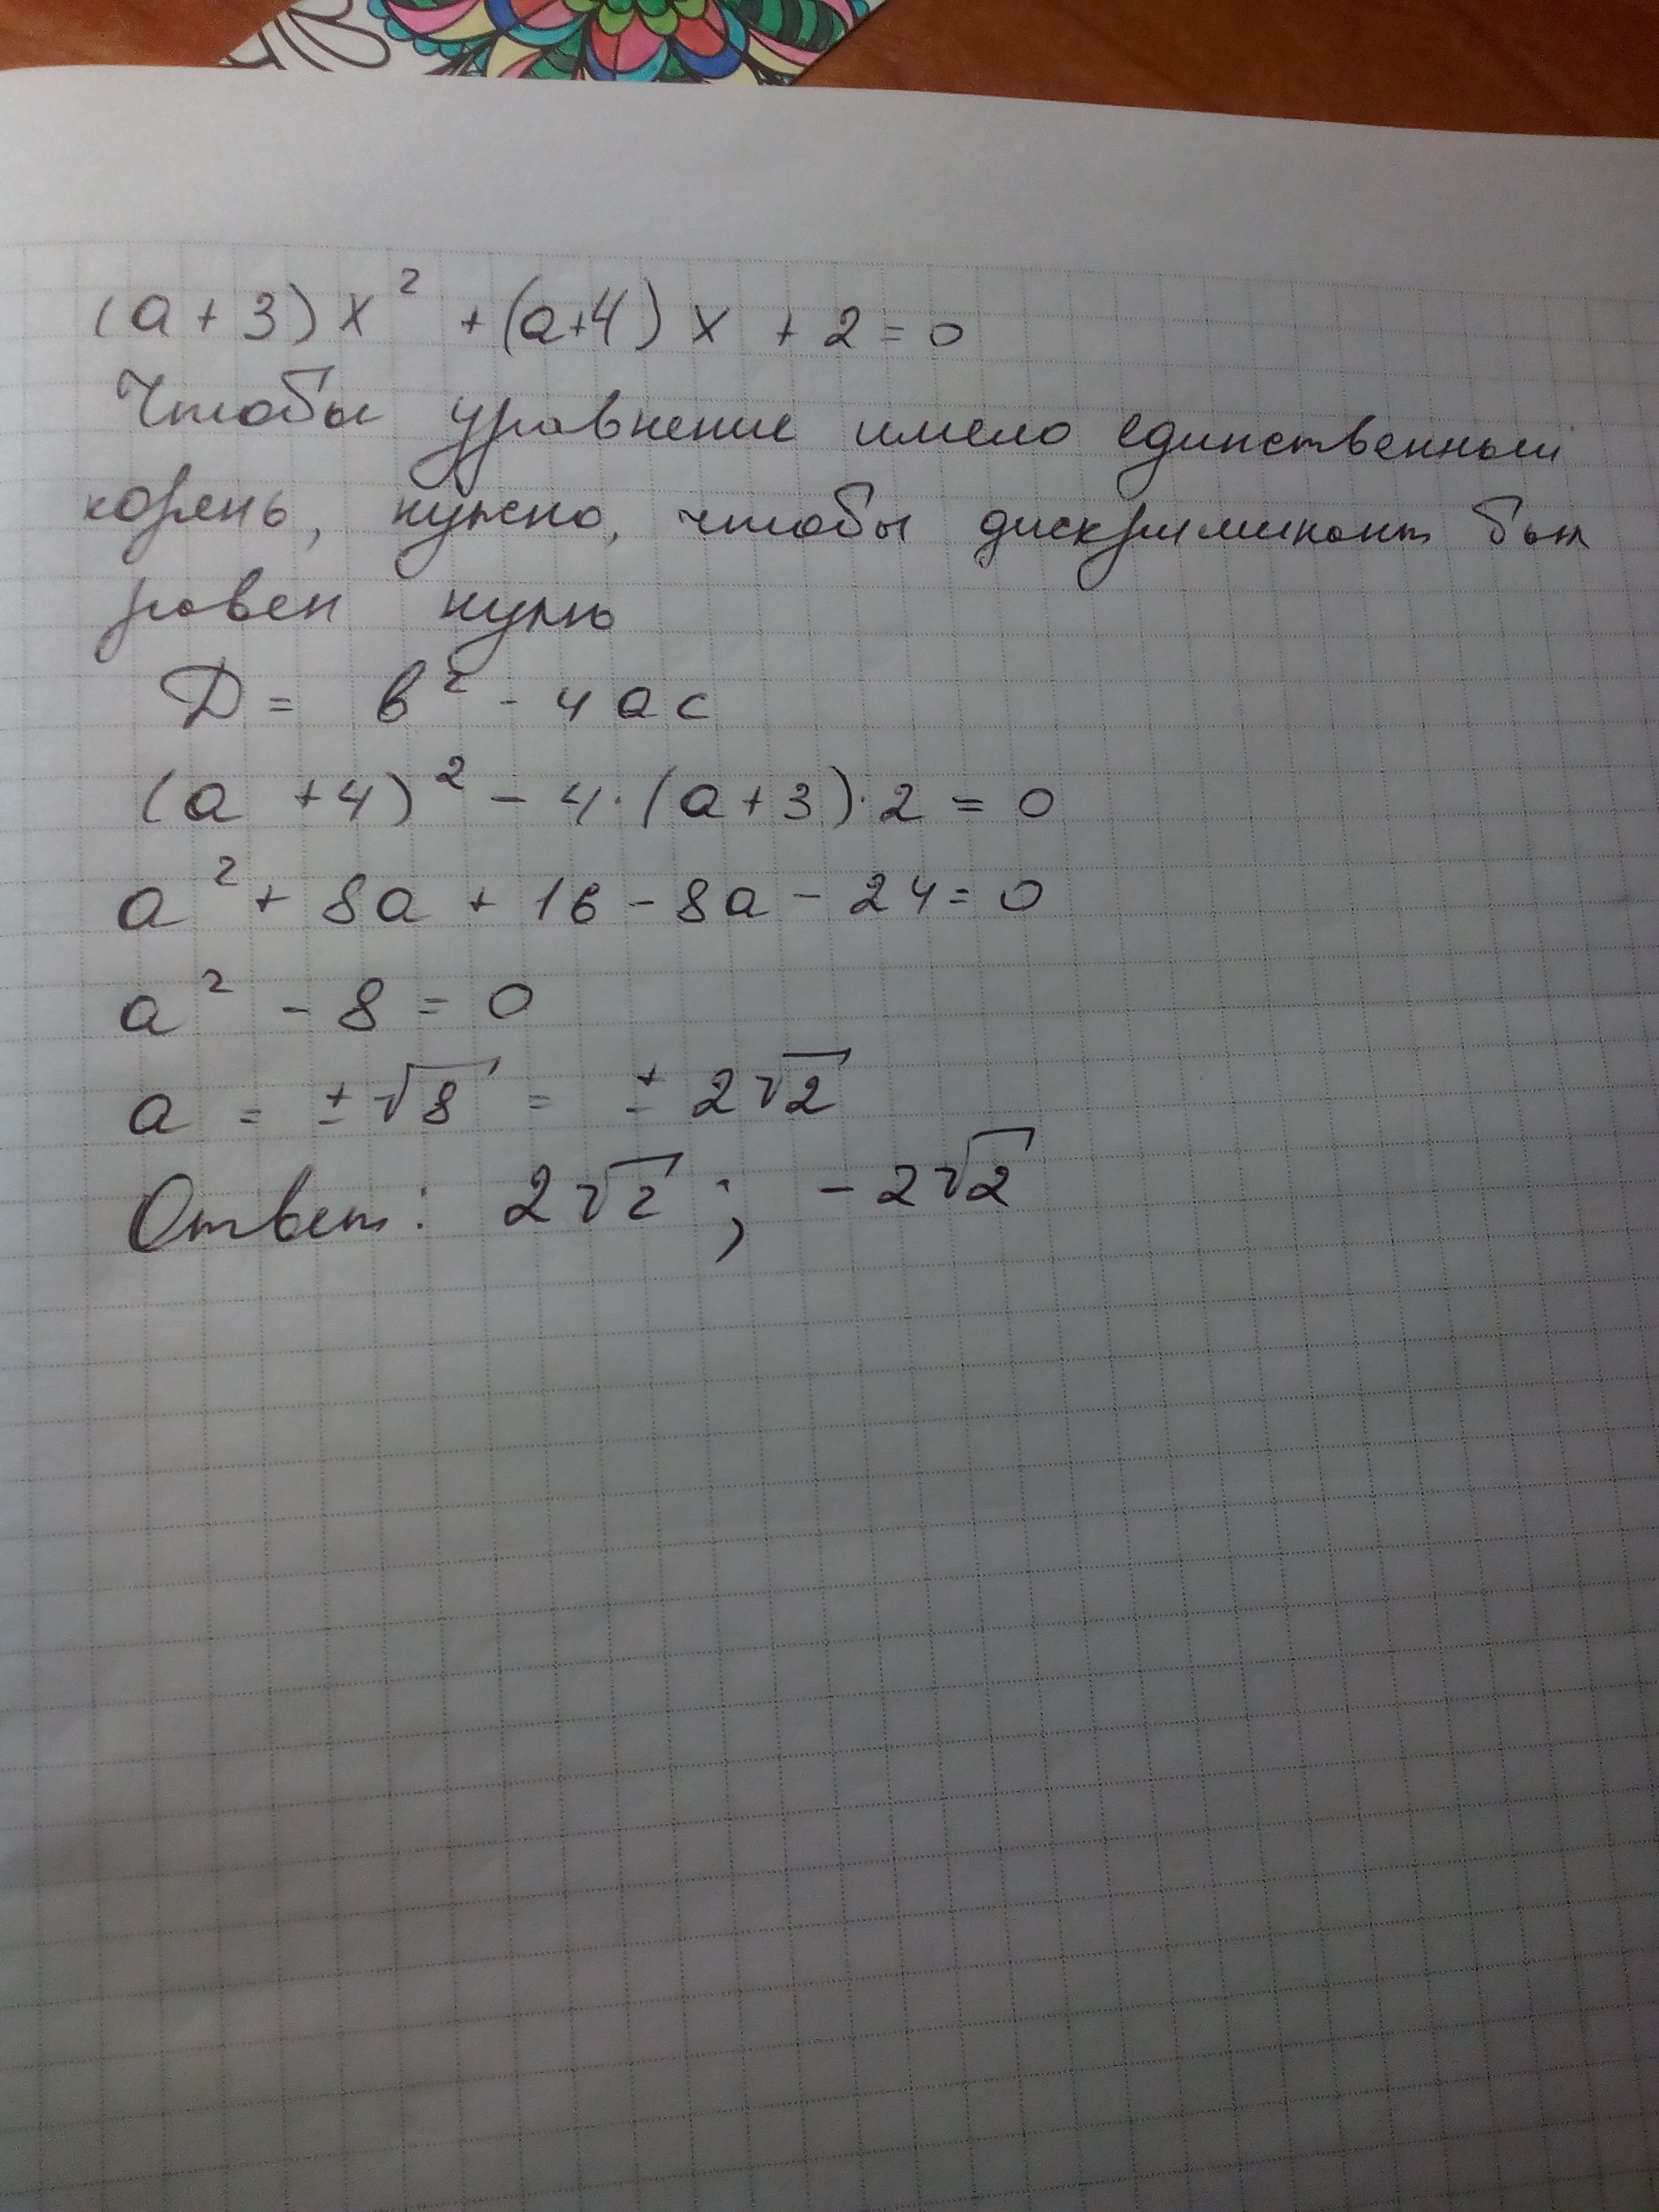 (a+3)x² + (a+4)x + 2 = 0
Чтобы уравнение имело единственный
корень, нужно, чтобы дискриминант был
равен нулю
D = b² - 4ac
(a + 4)² - 4·(a+3)·2 = 0
a² + 8a + 16 - 8a - 24 = 0
a² - 8 = 0
a = ±√8 = ±2√2
Ответ: 2√2; -2√2